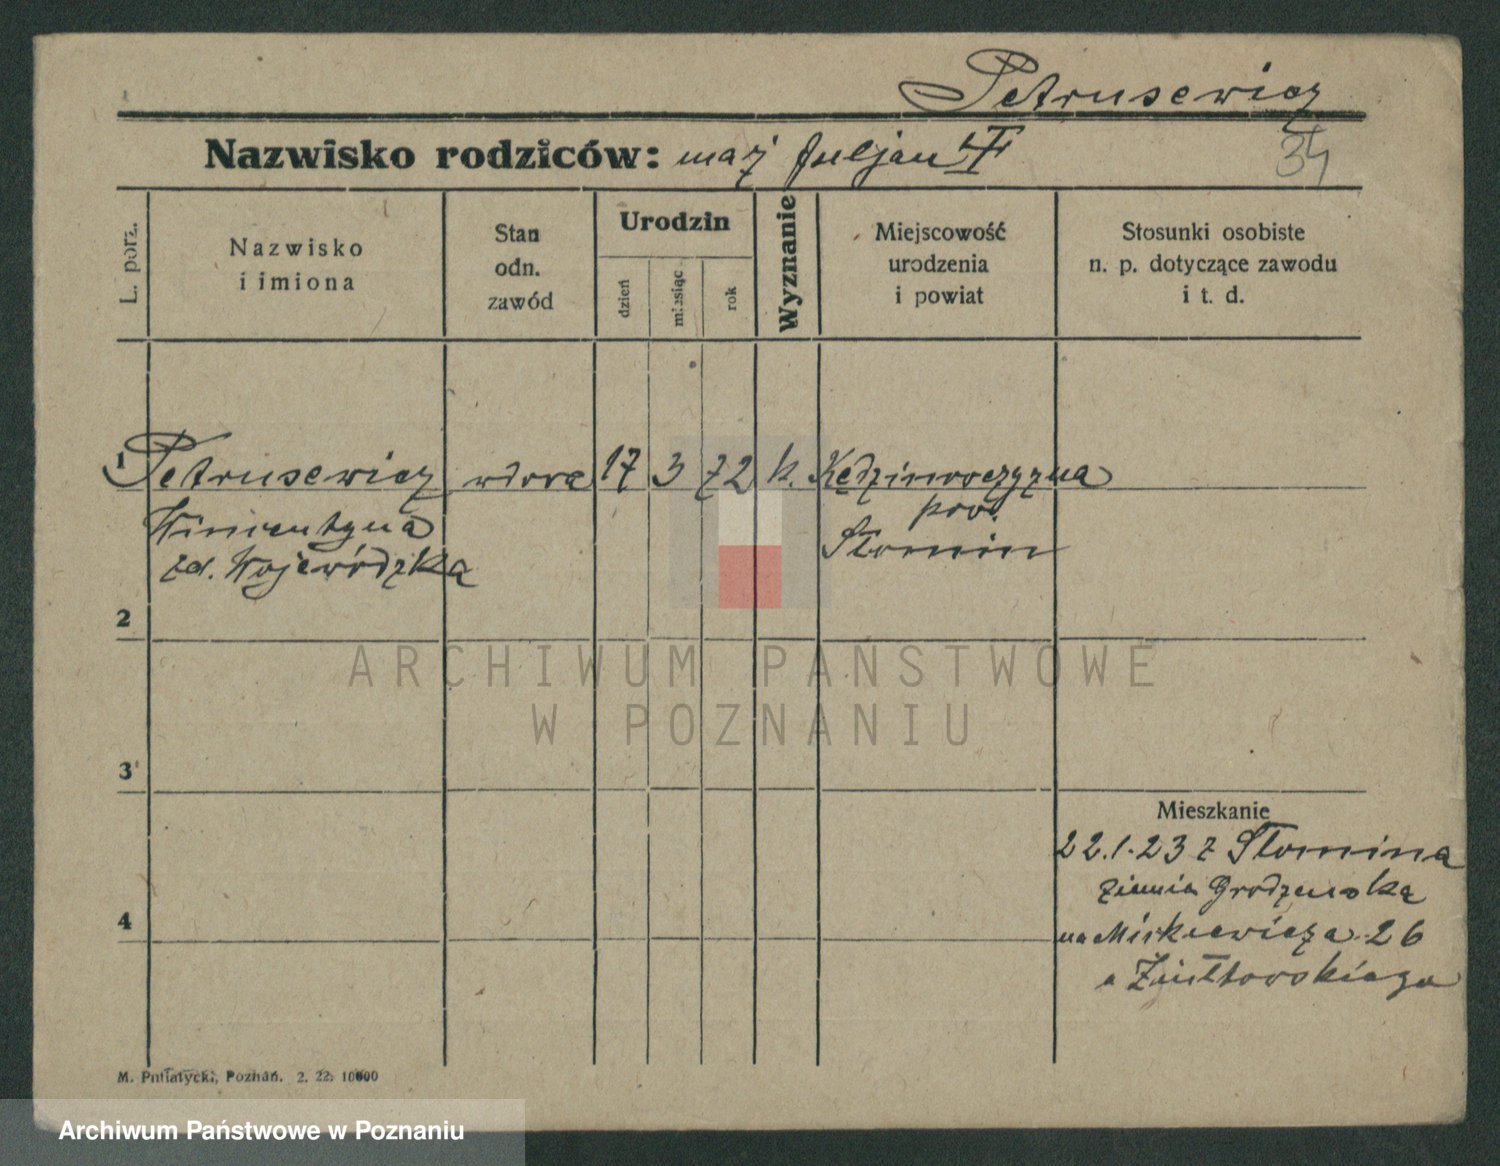 Petrusewicz
Nazwisko rodziców: mąż Juljan
34
L. porz.
Nazwisko
i imiona
Stan
odn.
zawód
Urodzin
dzień
miesiąc
rok
Wyznanie
Miejscowość
urodzenia
i powiat
Stosunki osobiste
n. p. dotyczące zawodu
i t. d.
1 Petrusewicz wdowa 17 3 72 k.
Wincentyna pow.
zd. Wojewódzka Słonim
2
3
4
ARCHIWUM PAŃSTWOWE
W POZNANIU
Mieszkanie
22.1.23 z Słonima
ziemia Grodzieńska
na Mickiewicza 26
M. Putiatycki, Poznań. 2. 22. 10000
Archiwum Państwowe w Poznaniu